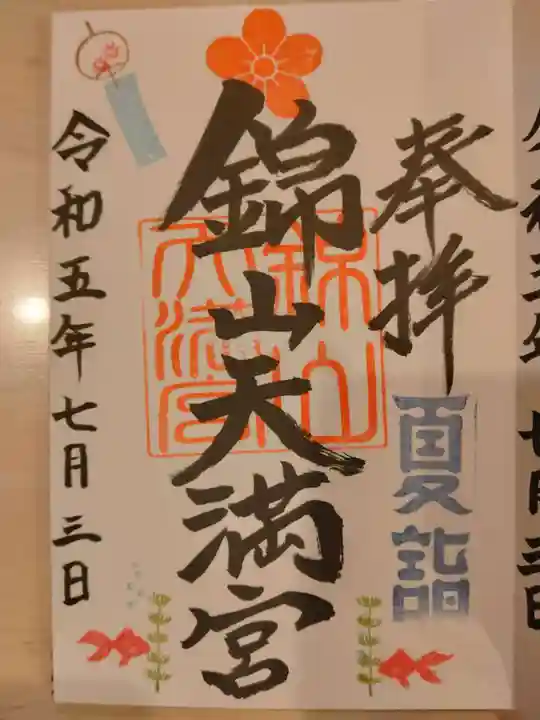 奉拝
夏詣
錦山天満宮
錦山
天満宮
令和五年七月三日